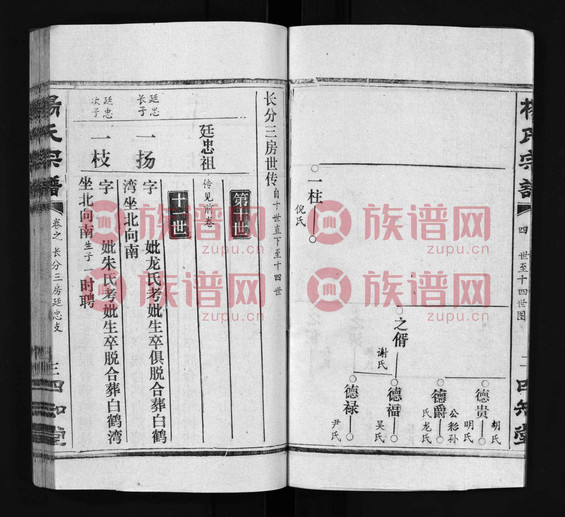 杨氏宗谱
四
世至十四世图
二
四知堂
一柱
倪氏
之偦
谢氏
德贵
胡氏
明氏
德爵
公彩孙
氏龙氏
德福
吴氏
德禄
尹氏
长分三房世传 自十世直下至十四世
第十世
廷忠祖 传见前卷
十一世
廷忠长子 一扬 字 妣龙氏考妣生卒俱脱合葬白鹤
湾坐北向南
廷忠次子 一枝 字 妣朱氏考妣生卒脱合葬白鹤湾
坐北向南 生子一 时聘
杨氏宗谱
卷之 长分三房廷忠支
三
四知堂
族谱网
zupu.cn